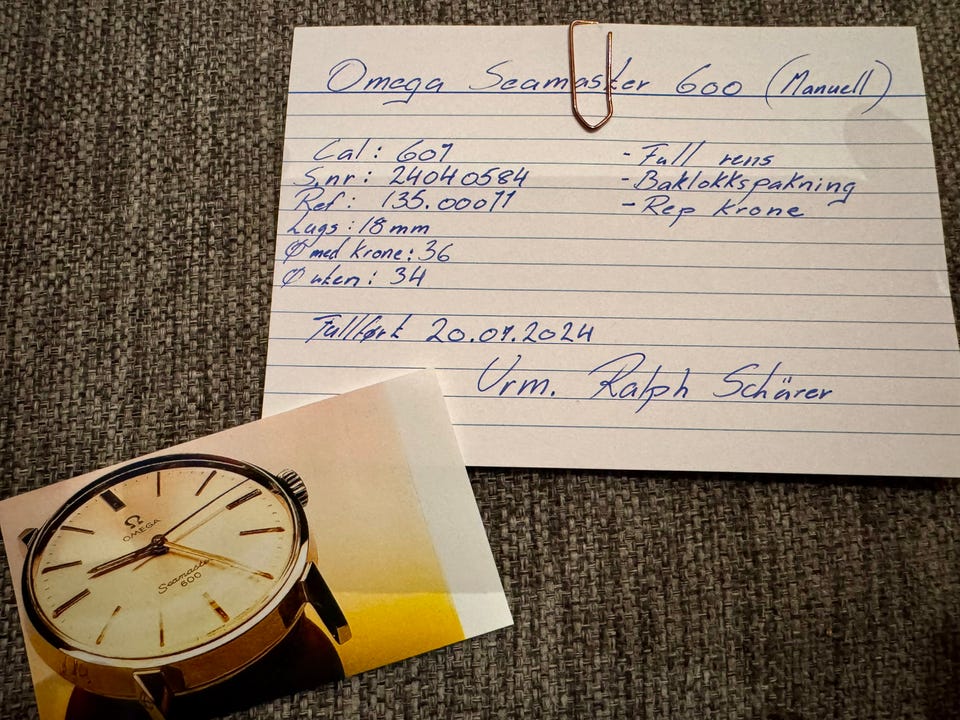 Omega Seamaster 600 (Manuell)
Cal: 601
S.nr: 24040584
Ref: 135.00011
Lugs: 18mm
Ø med krone: 36
Ø uten: 34
- Full rens
- Baklokkspakning
- Rep krone
Fullført 20.01.2024
Urm. Ralph Schärer
Ω
OMEGA
Seamaster
600